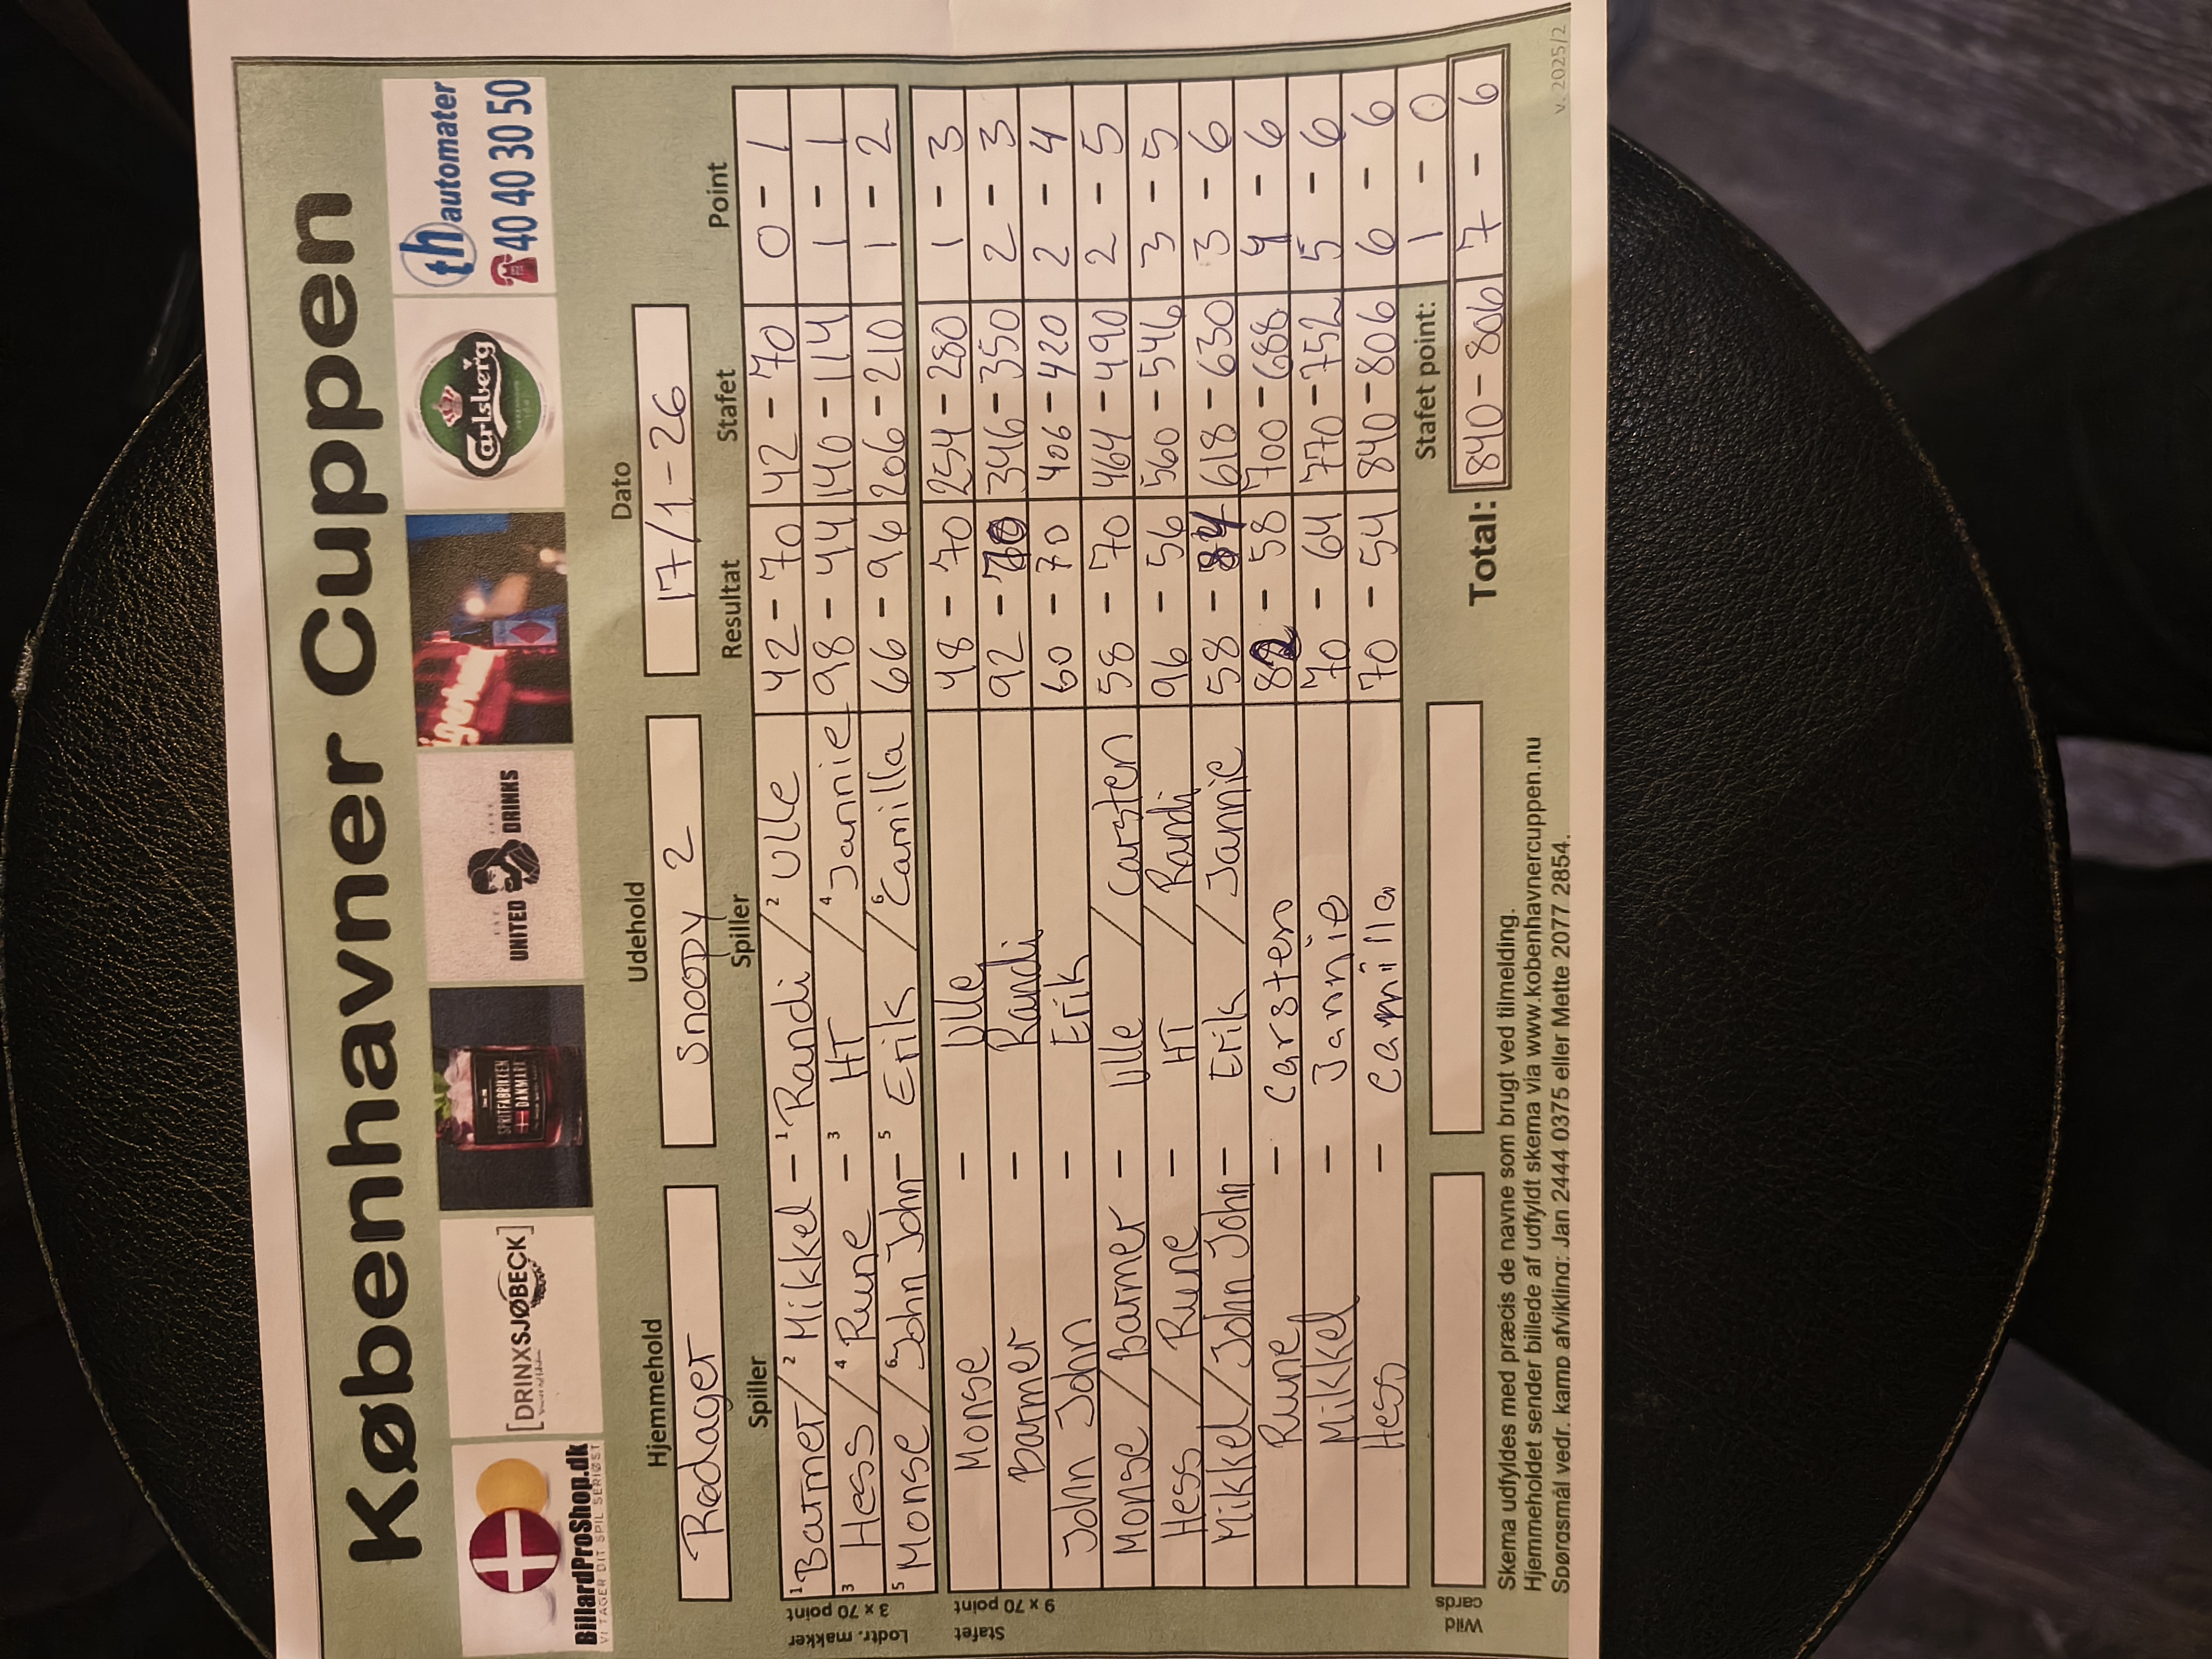 Københavner Cuppen
BillardProShop.dk
VI TAGER DIT SPIL SERIØST
[DRINXSJØBECK]
SPRITFABRIKEN
DANMARK
UNITED DRINKS
Carlsberg
th automater
40 40 30 50
Hjemmehold Udehold Dato
Rødager Snoopy 2 17/1-26
Spiller Spiller Resultat Stafet Point
1 Barmer / 2 Mikkel - 1 Randi / 2 Ulle 42 - 70 42 - 70 0 - 1
3 Hess / 4 Rune - 3 HT / 4 Jannie 98 - 44 140 - 114 1 - 1
5 Monse / 6 John John - 5 Erik / 6 Camilla 66 - 96 206 - 210 1 - 2
Lodtr. makker
3 x 70 point
Monse - Ulle 48 - 70 254 - 280 1 - 3
Barmer - Randi 92 - 70 346 - 350 2 - 3
John John - Erik 60 - 70 406 - 420 2 - 4
Monse / Barmer - Ulle / Carsten 58 - 70 464 - 490 2 - 5
Hess / Rune - HT / Randi 96 - 56 560 - 546 3 - 5
Mikkel / John John - Erik / Jannie 58 - 84 618 - 630 3 - 6
Rune - Carsten 82 - 58 700 - 688 4 - 6
Mikkel - Jannie 70 - 64 770 - 752 5 - 6
Hess - Camilla 70 - 54 840 - 806 6 - 6
Stafet
9 x 70 point
Stafet point: 1 - 0
Wild cards
Total: 840 - 806 7 - 6
Skema udfyldes med præcis de navne som brugt ved tilmelding.
Hjemmeholdet sender billede af udfyldt skema via www.kobenhavnercuppen.nu
Spørgsmål vedr. kamp afvikling: Jan 2444 0375 eller Mette 2077 2854.
v. 2025/2